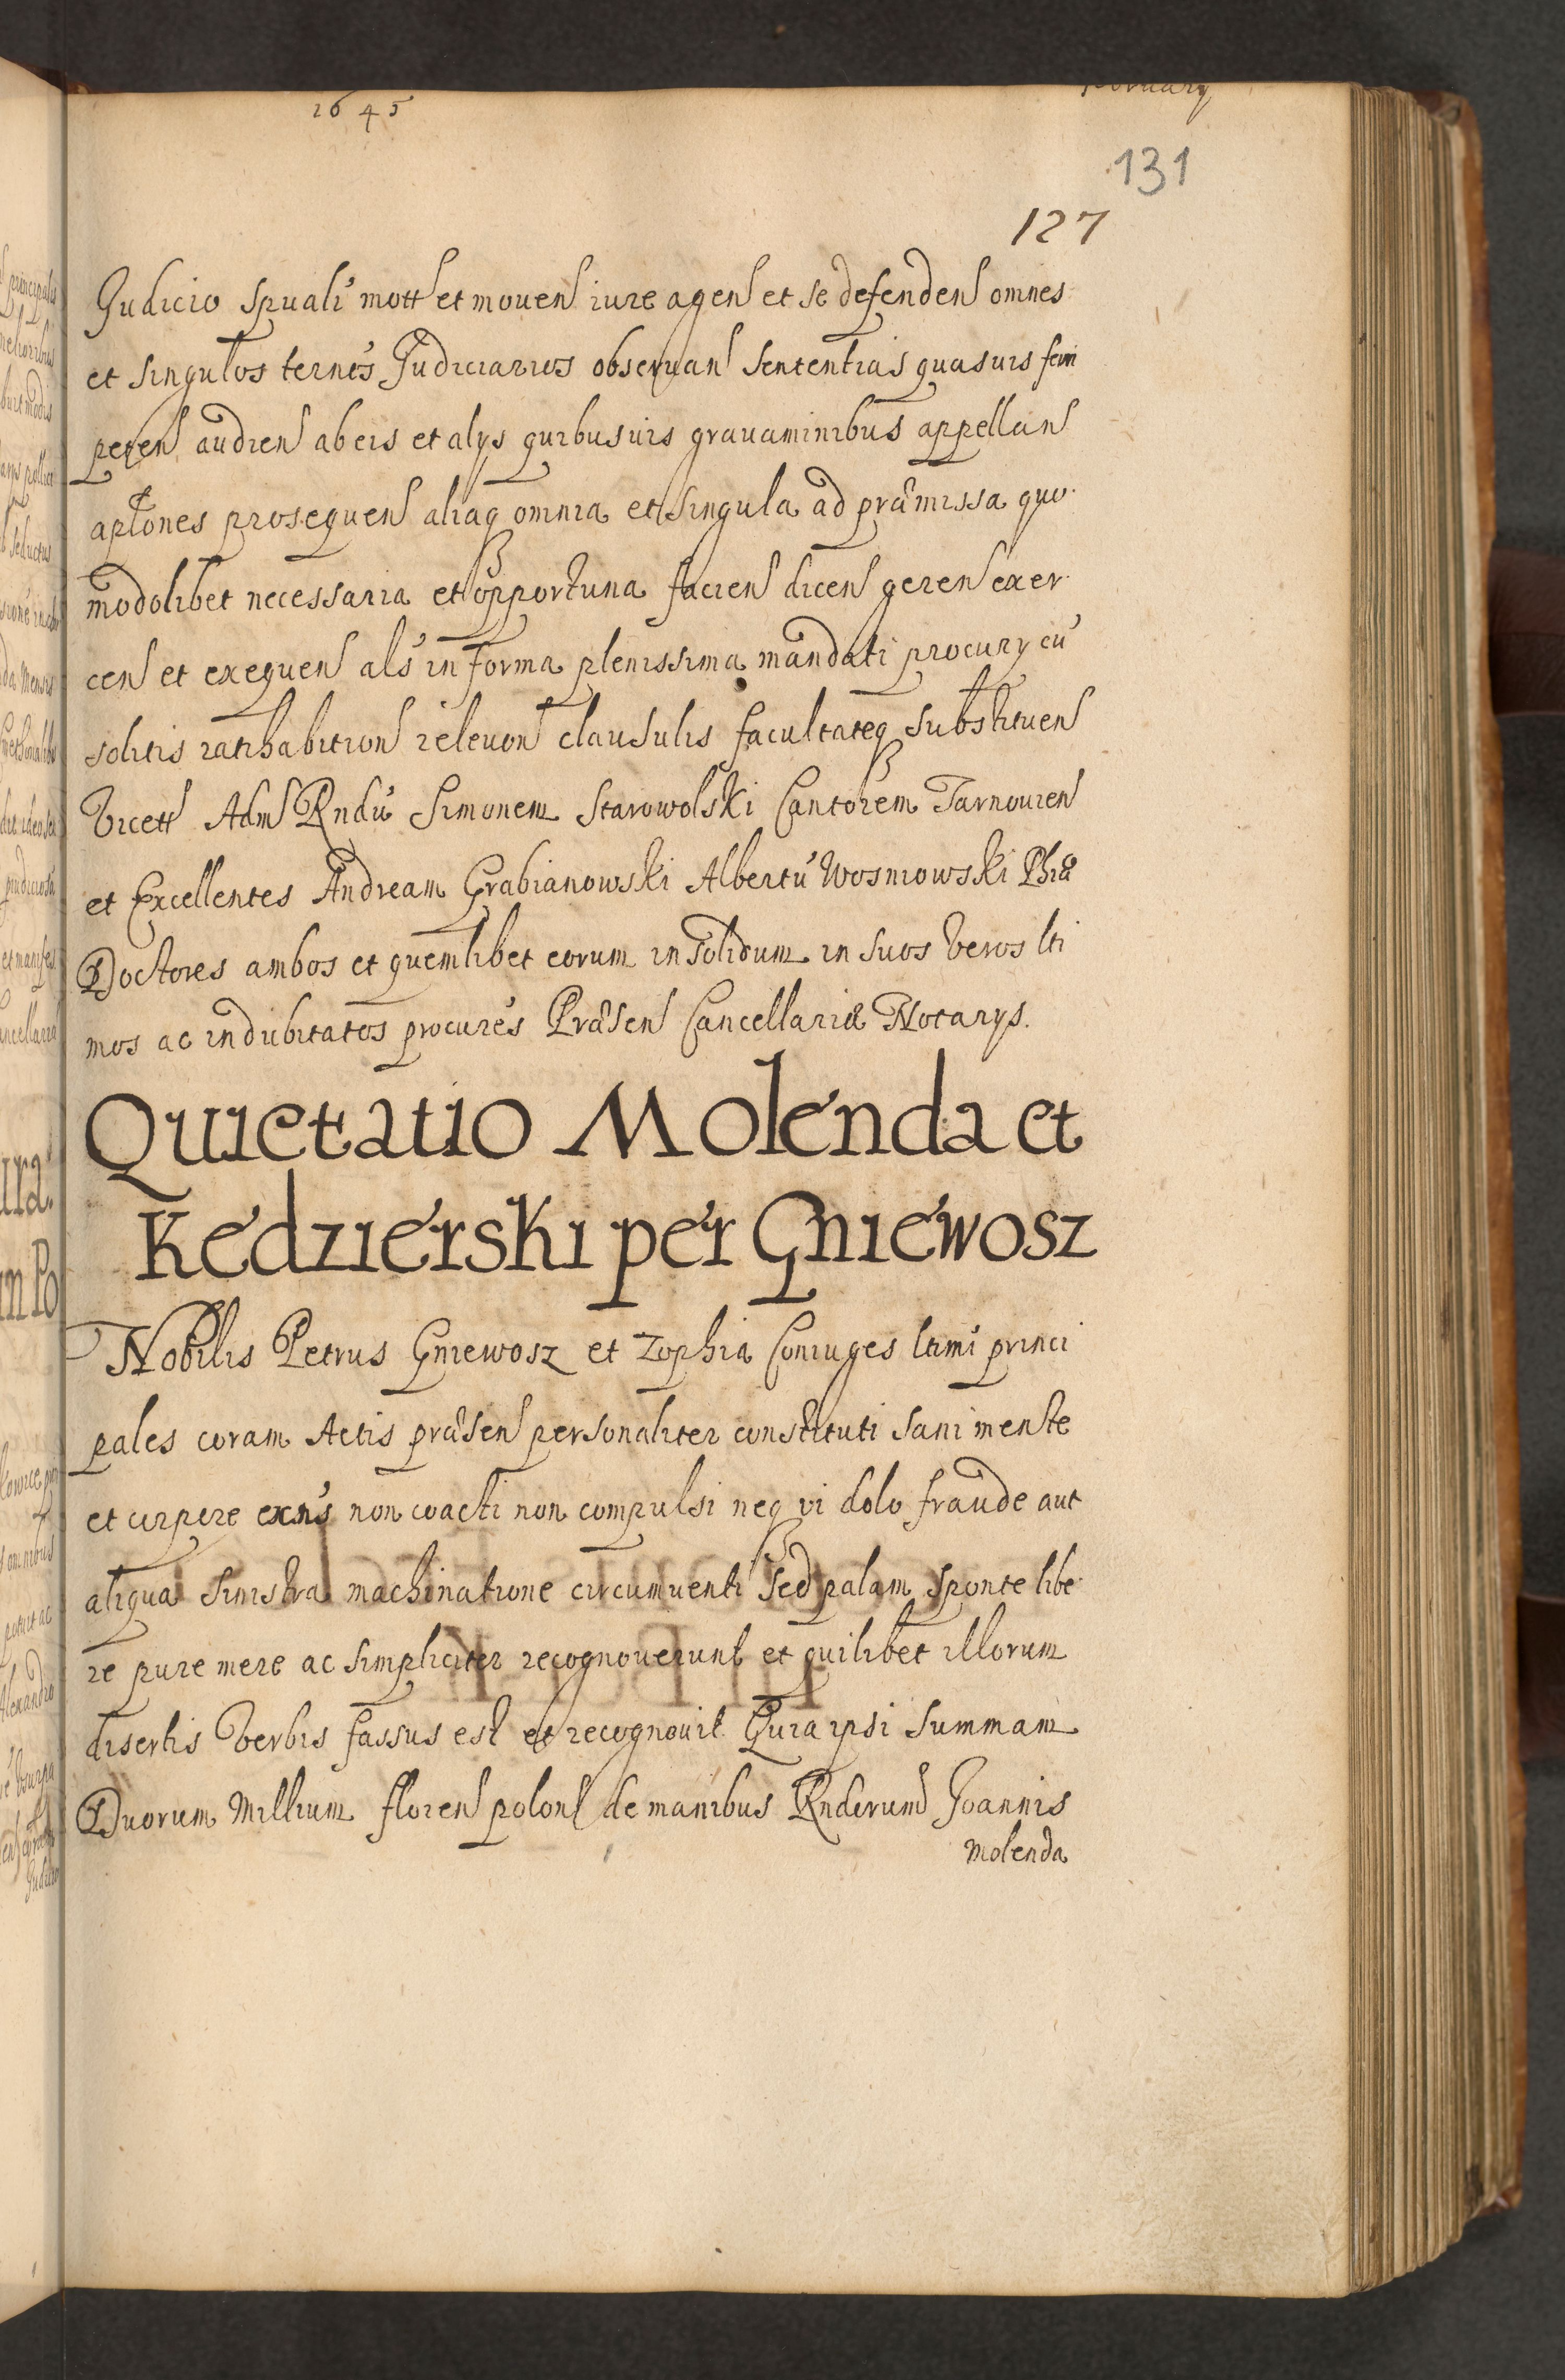 1645
February
131
127
Judicio spuali mott et mouen iure agen et se defenden omnes
et singulos ternos Judiciarios obseruan sententias quasuis
peten audien ab eis et alys quibusuis grauaminibus appellan
aplones prosequen aliaq omnia et singula ad præmissa quo
modolibet necessaria et opportuna facien dicen geren exer
cen et exequen als in forma plenissima mandati procury cu
solitis ratihabition releuon clausulis facultateq substituen
Vicett Adm Rndu Simonem Starowolski Cantorem Tarnouien
et Excellentes Andream Grabianowski Albertu Wosniowski Phiæ
Doctores ambos et quemlibet eorum in solidum in suos veros lti
mos ac indubitatos procures Præsen Cancellariæ Notarys.
Quietatio Molenda et
Kedzierski per Gniewosz
Nobilis Petrus Gniewosz et Zophia Coniuges ltimi princi
pales coram Actis præsen personaliter constituti sani mente
et corpore exns non coacti non compulsi neq vi dolo fraude aut
aliqua sinistra machinatione circumuenti sed palam sponte libe
re pure mere ac simpliciter recognouerunt et quilibet illorum
disertis verbis fassus est et recognouit Quia ipsi summam
Duorum Millium floren polon de manibus Rnderum Joannis
Molenda